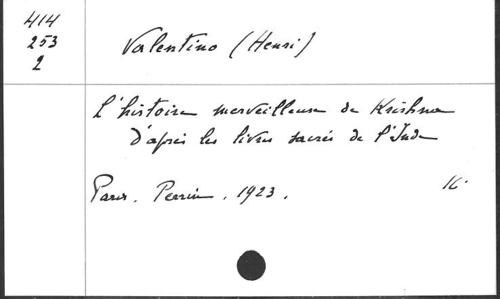 414
253
2
Valentino (Henri)
L'histoire merveilleuse de Krishna
d'après les livres sacrés de l'Inde
Paris. Perrin. 1923.
16.